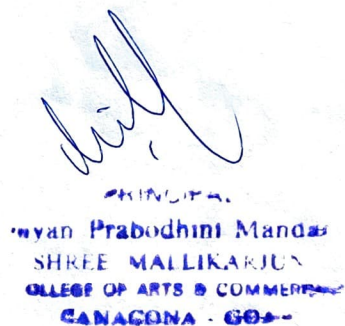 PRINCIPAL
nyan Prabodhini Mandal
SHREE MALLIKARJUN
OLLEGE OF ARTS & COMMERCE
CANACONA - GOA